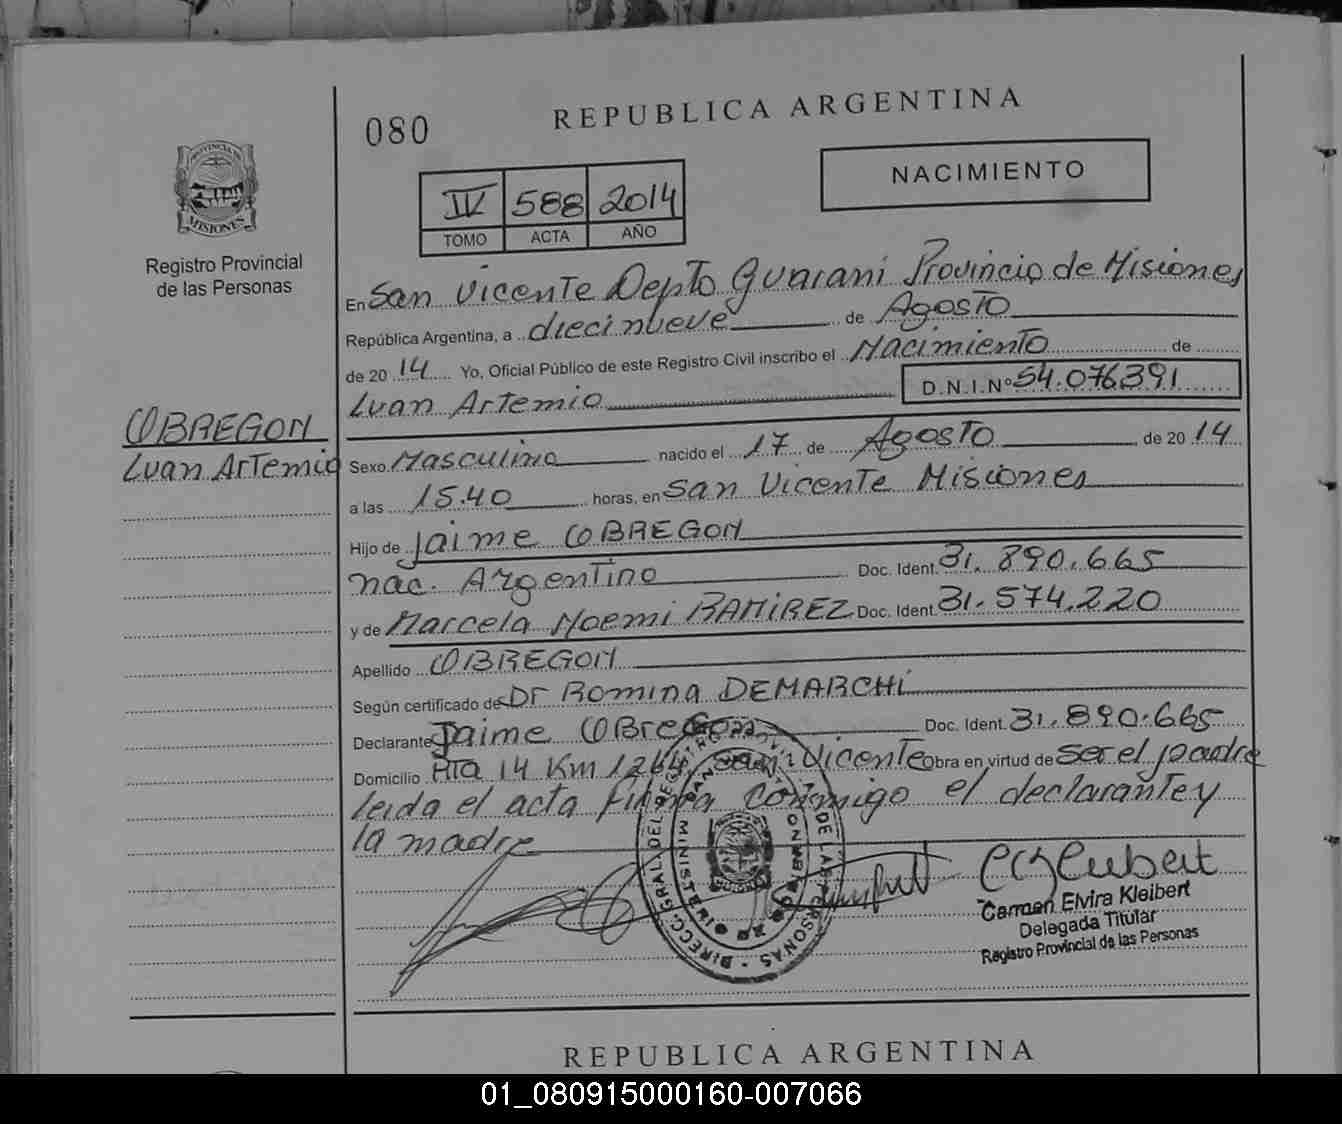 080
REPUBLICA ARGENTINA
NACIMIENTO
IV 588 2014
TOMO ACTA AÑO
PROVINCIA DE
MISIONES
Registro Provincial
de las Personas
En San Vicente Depto Guarani Provincia de Misiones
República Argentina, a diecinueve de Agosto
de 2014 Yo, Oficial Público de este Registro Civil inscribo el Nacimiento de
Luan Artemio D.N.I.Nº 54.076.391
OBREGON
Luan Artemio
Sexo Masculino nacido el 17 de Agosto de 2014
a las 15.40 horas, en San Vicente Misiones
Hijo de Jaime OBREGON
nac. Argentino Doc. Ident. 31.890.665
y de Marcela Noemi RAMIREZ Doc. Ident. 31.574.220
Apellido OBREGON
Según certificado de Dr Romina DEMARCHI
Declarante Jaime OBregon Doc. Ident. 31.890.665
Domicilio Rta 14 Km 1264 San Vicente Obra en virtud de ser el padre
leida el acta firma conmigo el declarante y
la madre
Carmen Elvira Kleibert
Delegada Titular
Registro Provincial de las Personas
REPUBLICA ARGENTINA
01_080915000160-007066